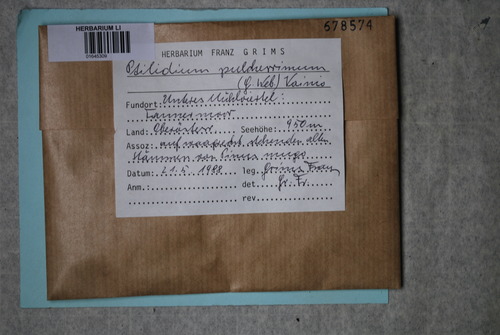 678574
HERBARIUM LI
HERBARIUM FRANZ GRIMS
Ptilidium pulcherrimum
(G. Web) Vainio
Fundort: Unteres Mühlviertel:
Land: Oberösterr. Seehöhe: 950 m
Assoz: auf waagrecht stehenden alten
Stämmen von Pinus mugo
Datum: 21.5.1988 leg. Grims Franz
Anm.: det. Gr. Fr.
rev.